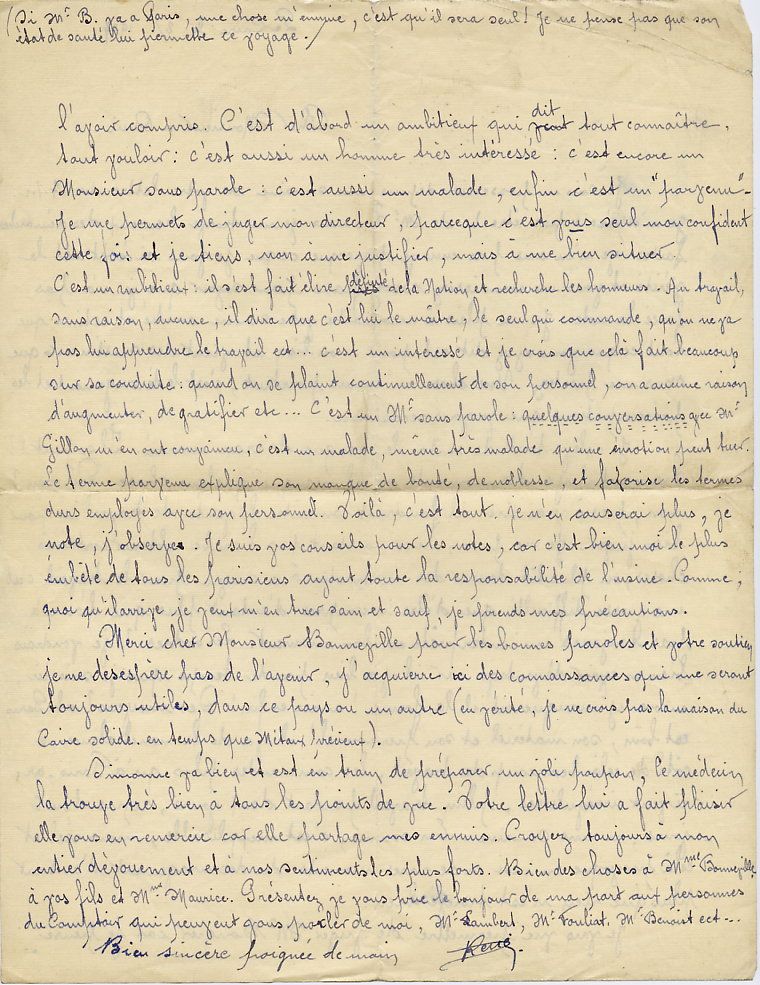 (Si Mr B. va a Paris, une chose m'ennuie, c'est qu'il sera seul! Je ne pense pas que son
état de santé lui permette ce voyage.)
l'avoir compris. C'est d'abord un ambitieux qui dit tout connaître,
tout vouloir: c'est aussi un homme très intéressé: c'est encore un
Monsieur sans parole: c'est aussi un malade, enfin c'est un "parvenu"-
Je me permets de juger mon directeur, parceque c'est vous seul mon confident
cette fois et je tiens, non à me justifier, mais à me bien situer.
C'est un ambitieux: il s'est fait élire député de la Nation et recherche les honneurs. Au travail,
sans raison, aucune, il dira que c'est lui le maître, le seul qui commande, qu'on ne va
pas lui apprendre le travail ect... c'est un intéressé et je crois que celà fait beaucoup
sur sa conduite: quand on se plaint continuellement de son personnel, on a aucune raison
d'augmenter, de gratifier etc... C'est un Mr sans parole: quelques conversations avec Mr
Gillon m'en ont convaincu, c'est un malade, même très malade qu'une émotion peut tuer.
Le terme parvenu explique son manque de bonté, de noblesse, et favorise les termes
durs employés avec son personnel. Voilà, c'est tout. Je n'en causerai plus, je
note, j'observe. Je suis vos conseils pour les notes, car c'est bien moi le plus
embêté de tous les parisiens ayant toute la responsabilité de l'usine. Comme,
quoi qu'il arrive je veux m'en tirer sain et sauf, je prends mes précautions.
Merci cher Monsieur Bonneville pour les bonnes paroles et votre soutien
je ne désespère pas de l'avenir, j'acquierre ici des connaissances qui me seront
toujours utiles, dans ce pays ou un autre (en vérité, je ne crois pas la maison du
Caire solide. en temps que Métaux précieux).
Simonne va bien et est en train de préparer un joli poupon, le médecin
la trouve très bien à tous les points de vue. Votre lettre lui a fait plaisir
elle vous en remercie car elle partage mes ennuis. Croyez toujours à mon
entier dévouement et à nos sentiments les plus forts. Bien des choses à Mme Bonneville
à vos fils et Mme Maurice. Présentez je vous prie le bonjour de ma part aux personnes
du Comptoir qui peuvent vous parler de moi, Mr Lambert, Mr Fouliat, Mr Benoist ect...
Bien sincère poignée de main René